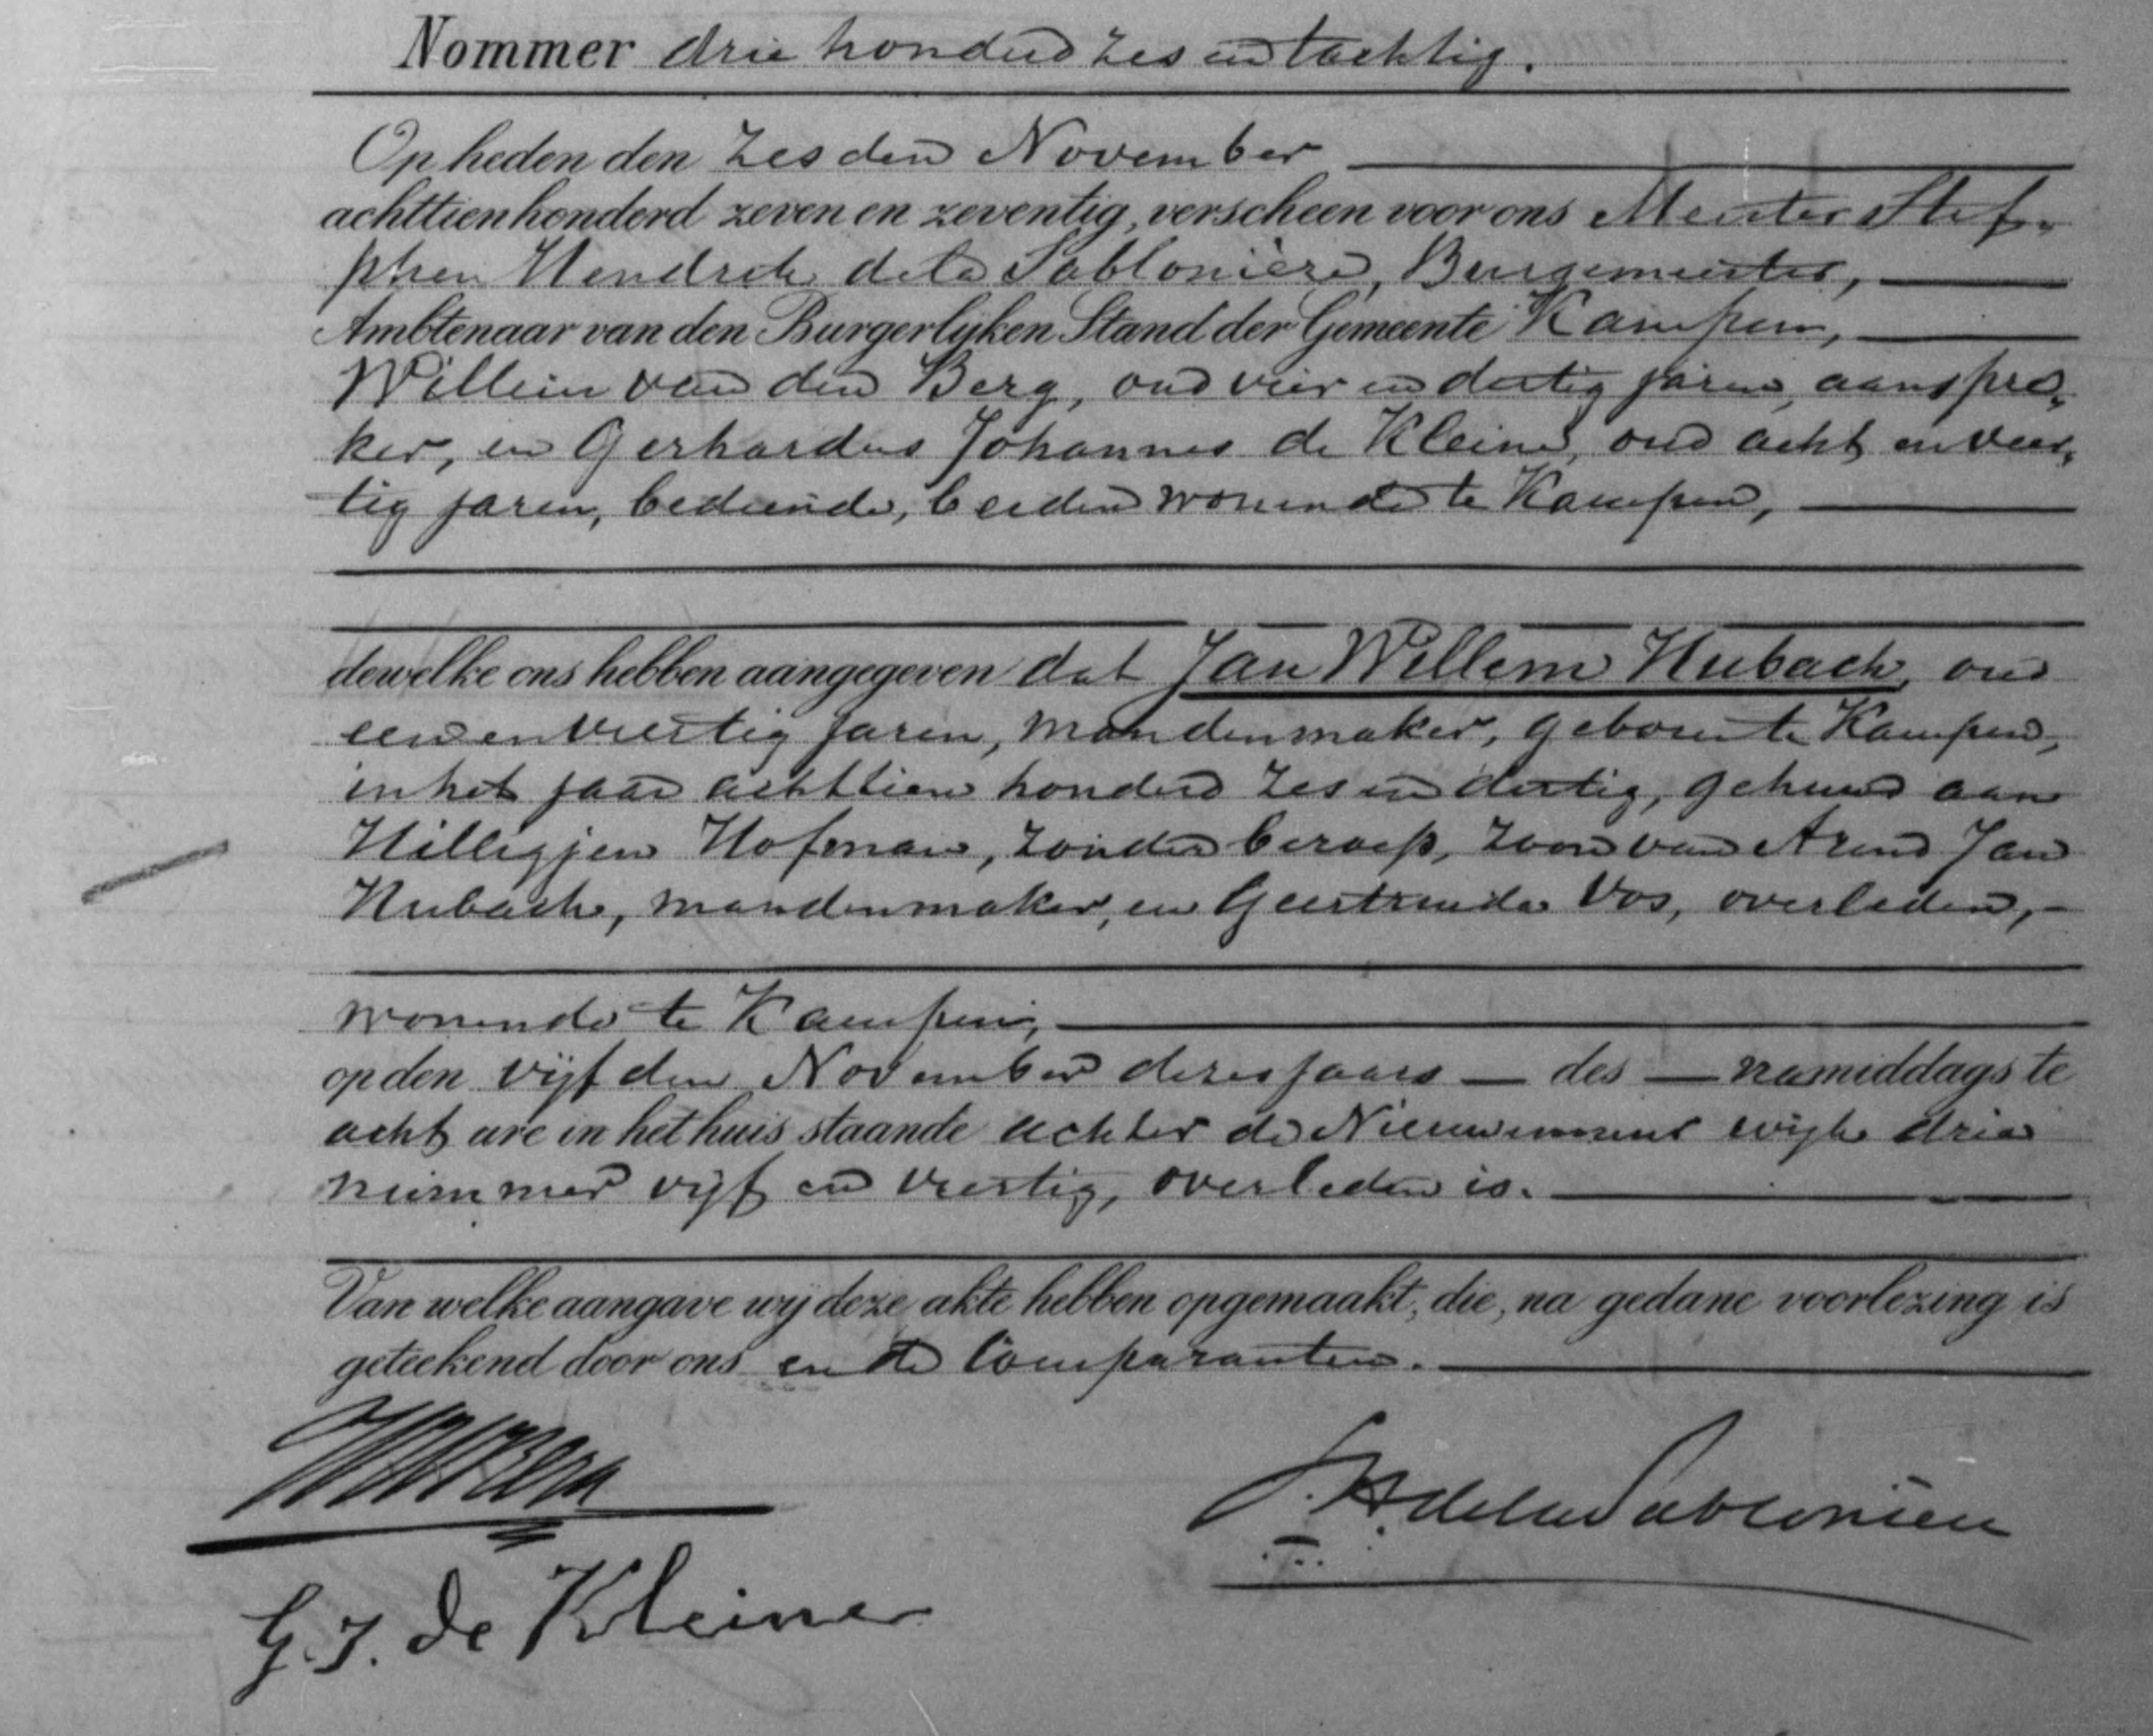 Nommer drie honderd zes en tachtig.
Op heden den zesden November
achttienhonderd zeven en zeventig, verscheen voor ons Meester Stef„
phen Hendrik de la Sablonière, Burgemeester,
Ambtenaar van den Burgerlijken Stand der Gemeente Kampen,
Willem van den Berg, oud vier en dertig jaren, aanspre„
ker, en Gerhardus Johannes de Kleine, oud acht en veer„
tig jaren, bediende, beiden wonende te Kampen,
dewelke ons hebben aangegeven dat Jan Willem Hubach, oud
een en veertig jaren, mandenmaker, geboren te Kampen,
in het jaar achttien honderd zes en dertig, gehuwd aan
Hilligjen Hofman, zonder beroep, zoon van Arend Jan
Hubach, mandenmaker, en Geertruida Vos, overleden,
wonende te Kampen,
op den vijfden November dezes jaars des namiddags te
acht ure in het huis staande achter de Nieuwemuur wijk drie
nummer vijf en veertig, overleden is.
Van welke aangave wij deze akte hebben opgemaakt, die, na gedane voorlezing is
geteekend door ons en de Comparanten.
WvdBerg
S.H. de la Sablonière
G.J. de Kleine